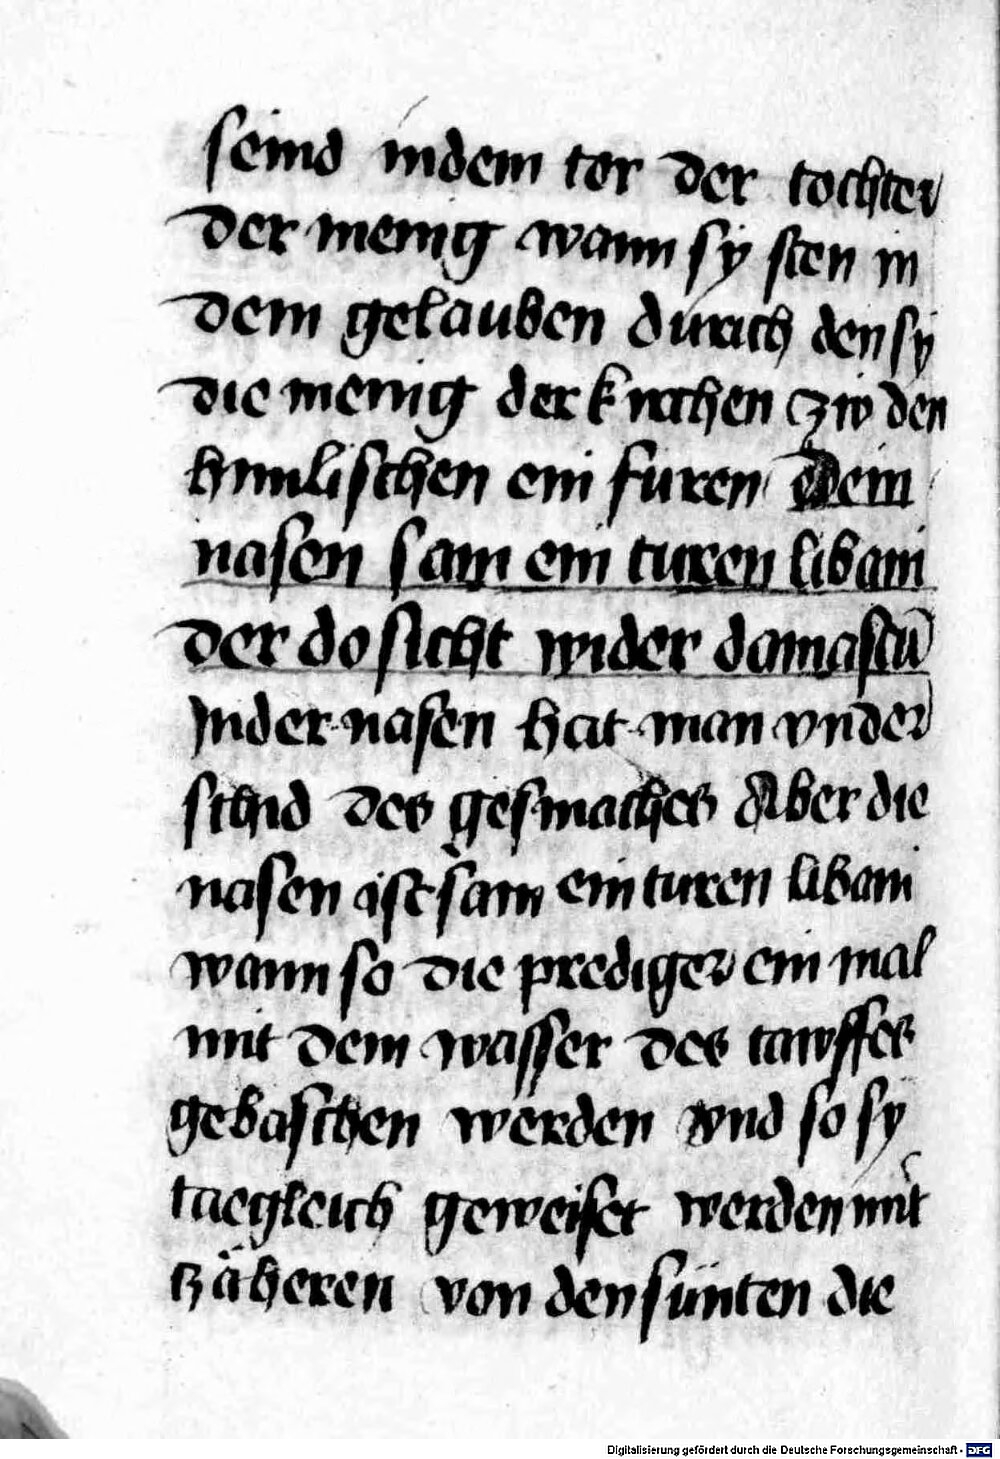 seind indem tor der tochter
der menig wann sy sten in
dem gelauben durich den sy
die menig der kirchen zw den
himlischen ein furen Dein
nasen sam ein turen libani
der do sicht wider damascū
Inder nasen hat man vnder
schid des gesmaches Aber die
nasen ist sam ein turen libani
wann so die prediger ein mal
mit dem wasser des tawffes
gebaschen werden vnd so sy
taegleich geweiset werden mit
zäheren von den sünten die
Digitalisierung gefördert durch die Deutsche Forschungsgemeinschaft - DFG